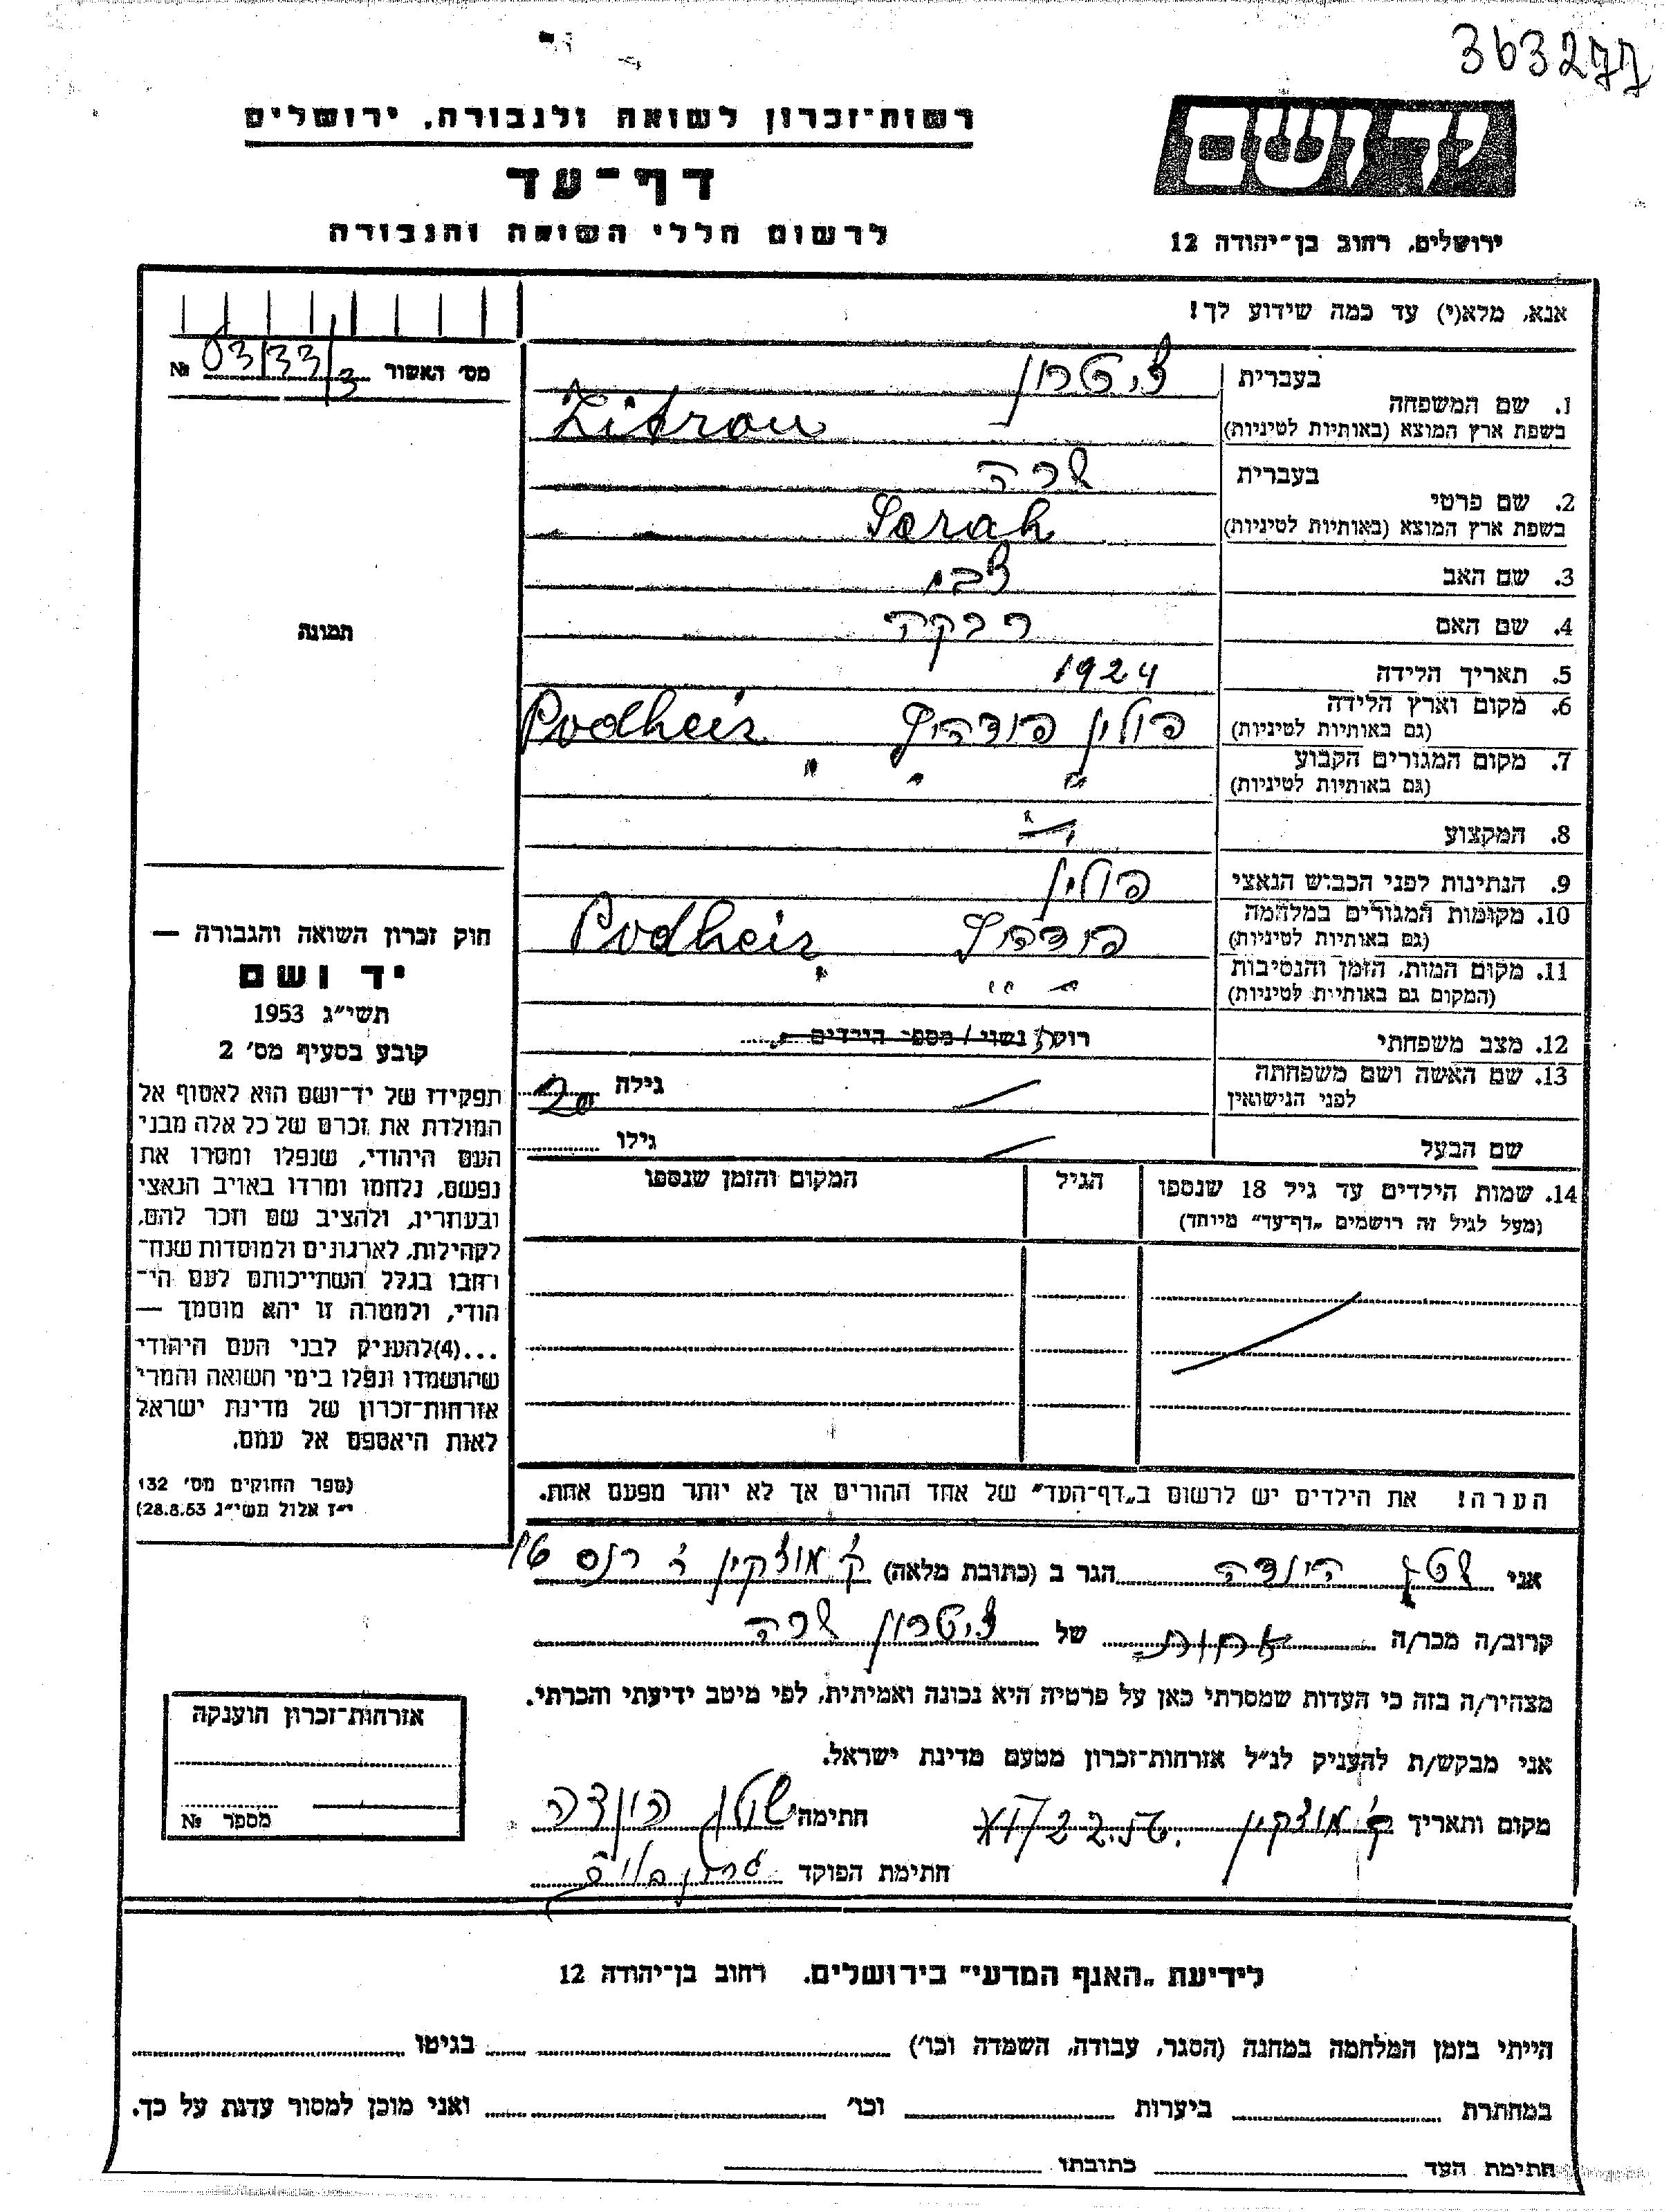 363277
יד ושם
רשות־זכרון לשואה ולגבורה, ירושלים
דף־עד
לרשום חללי השואה והגבורה
ירושלים, רחוב בן־יהודה 12
אנא, מלא(י) עד כמה שידוע לך!
מס׳ האשור 03/33/3 №
1. שם המשפחה
בעברית ציטרון
בשפת ארץ המוצא (באותיות לטיניות) Zitron
2. שם פרטי
בעברית שרה
בשפת ארץ המוצא (באותיות לטיניות) Sarah
3. שם האב צבי
4. שם האם רבקה
5. תאריך הלידה 1924
6. מקום וארץ הלידה פולין פודהיץ Podheiz
(גם באותיות לטיניות)
7. מקום המגורים הקבוע " " "
(גם באותיות לטיניות)
8. המקצוע
9. הנתינות לפני הכבוש הנאצי פולין
10. מקומות המגורים במלחמה פודהיץ Podheiz
(גם באותיות לטיניות)
11. מקום המות, הזמן והנסיבות " " "
(המקום גם באותיות לטיניות)
12. מצב משפחתי רווק/ נשוי / מספר הילדים
13. שם האשה ושם משפחתה גילה 20
לפני הנישואין
שם הבעל גילו
14. שמות הילדים עד גיל 18 שנספו הגיל המקום והזמן שנספו
(מעל לגיל זה רושמים „דף־עד" מיוחד)
הערה! את הילדים יש לרשום ב„דף־העד" של אחד ההורים אך לא יותר מפעם אחת.
תמונה
חוק זכרון השואה והגבורה —
יד ושם
תשי״ג 1953
קובע בסעיף מס׳ 2
תפקידו של יד־ושם הוא לאסוף אל
המולדת את זכרם של כל אלה מבני
העם היהודי, שנפלו ומסרו את
נפשם, נלחמו ומרדו באויב הנאצי
ובעוזריו, ולהציב שם וזכר להם,
לקהילות, לארגונים ולמוסדות שנח־
רבו בגלל השתייכותם לעם הי־
הודי, ולמטרה זו יהא מוסמך —
...(4) להעניק לבני העם היהודי
שהושמדו ונפלו בימי השואה והמרי
אזרחות־זכרון של מדינת ישראל
לאות היאספם אל עמם.
(ספר החוקים מס׳ 132
י״ז אלול תשי״ג 28.8.53)
אני הינדה הגר ב (כתובת מלאה) ק׳ מוצקין
קרוב/ה מכר/ה אחות של ציטרון שרה
מצהיר/ה בזה כי העדות שמסרתי כאן על פרטיה היא נכונה ואמיתית, לפי מיטב ידיעתי והכרתי.
אני מבקש/ת להעניק לנ״ל אזרחות־זכרון מטעם מדינת ישראל.
מקום ותאריך ק׳ מוצקין חתימה הינדה
חתימת הפוקד
אזרחות־זכרון הוענקה
מספר №
לידיעת „האגף המדעי" בירושלים. רחוב בן־יהודה 12
הייתי בזמן המלחמה במחנה (הסגר, עבודה, השמדה וכו׳) בגיטו
במחתרת ביערות וכו׳ ואני מוכן למסור עדות על כך.
חתימת העד כתובתו